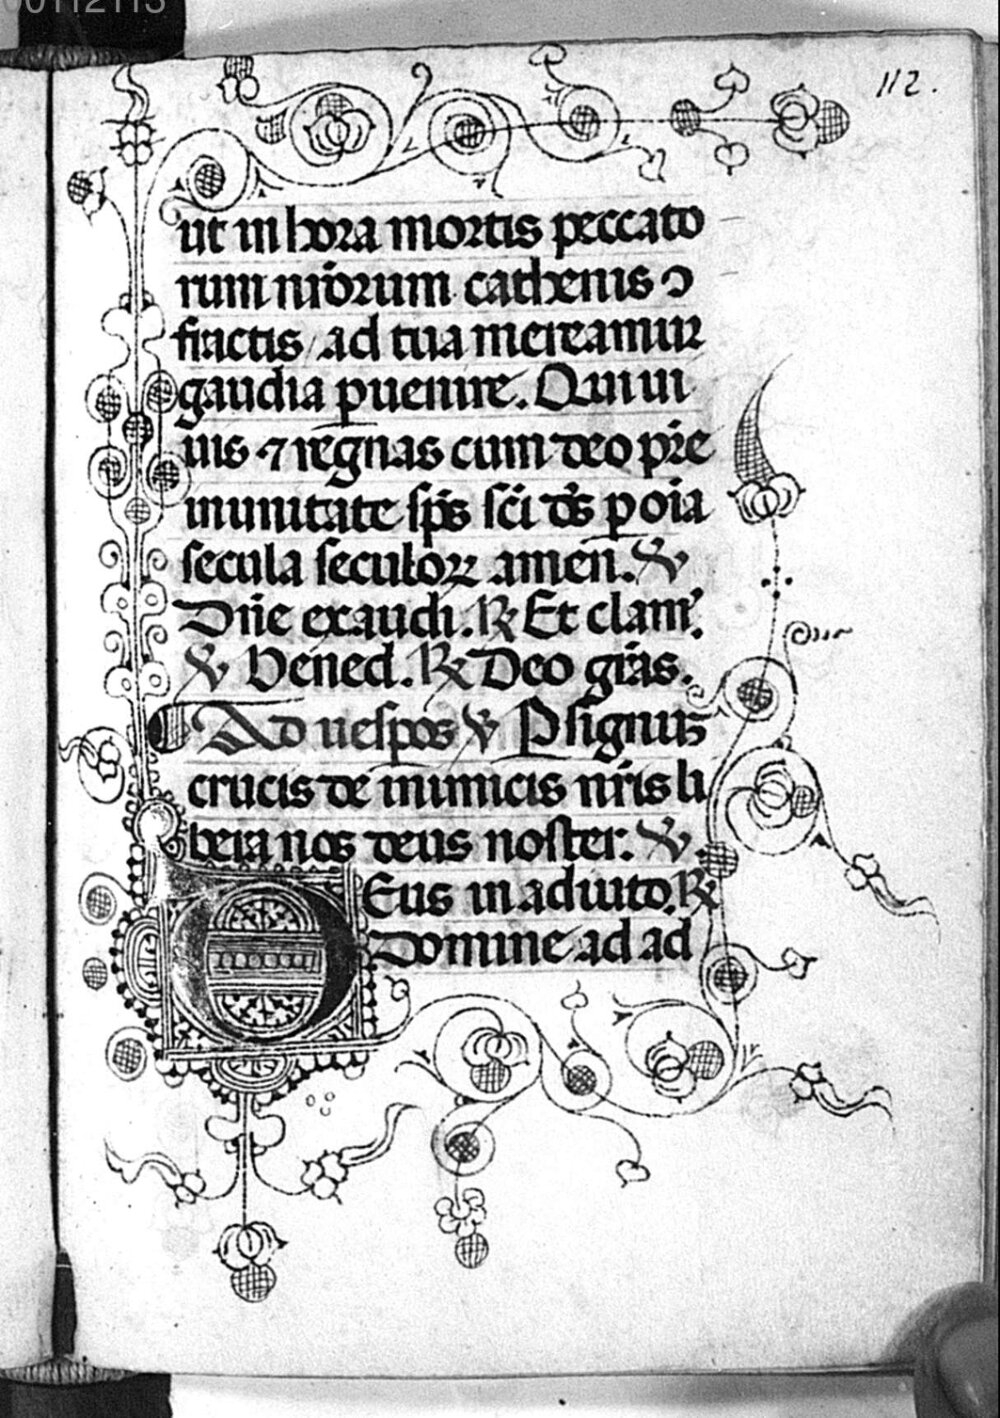 00112113
112.
ut in hora mortis peccato
rum nr̄orum cathenis ↄ
fractis / ad tua mereamur
gaudia ꝑuenire. Qui ui
uis ⁊ regnas cum deo pr̄e
in unitate sp̄s sc̄i de᷒s ꝑ oīa
secula seculoꝝ amen. ℣
Dn̄e exaudi. ℟ Et clam̄.
℣ Bened. ℟ Deo gr̄as.
Ad uesꝑos ℣ P signuꝫ
crucis de inimicis nr̄is li
bera nos deus noster. ℣.
Deus in adiuto. ℟
Domine ad ad